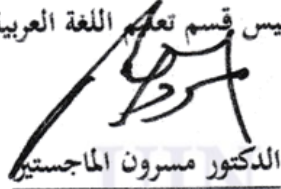 يس قسم تعليم اللغة العربية
الدكتور مسرون الماجستير